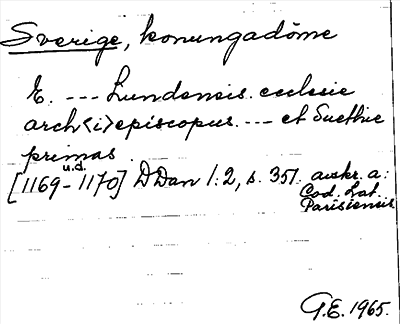 Sverige, konungadöme
E. --- Lundensis ecclesie
arch<i>episcopus --- et Suethie
primas.
u.d.
[1169-1170] DDan 1:2, s. 351. avskr. a:
Cod. Lat.
Parisiensis
G.E. 1965.